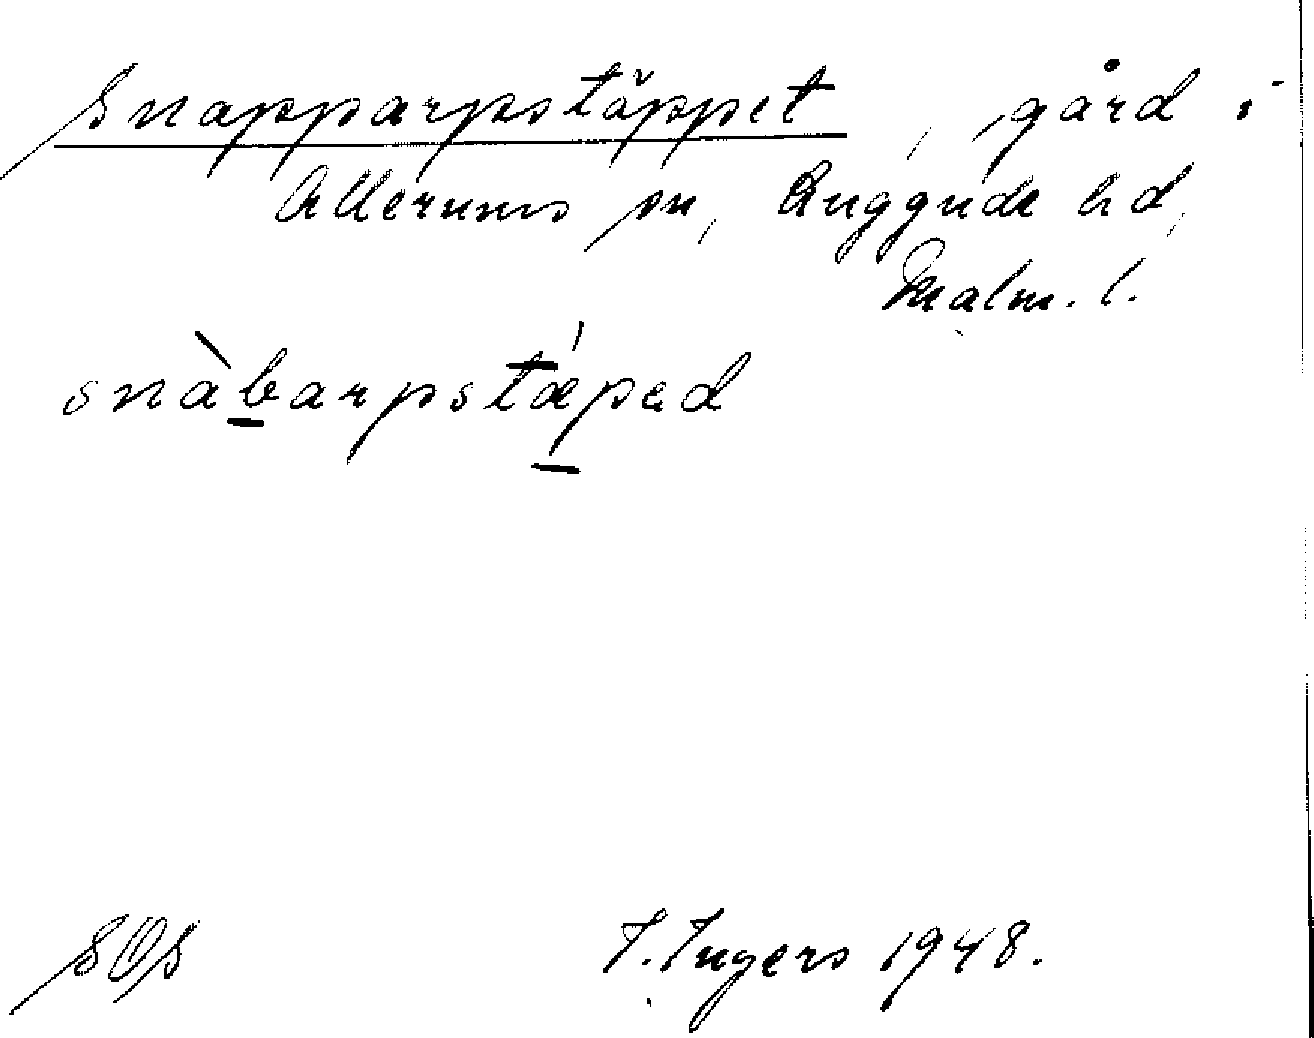 Snapparpstäppet, gård i
Allerums sn, Luggude hd,
Malm. l.
snàbarpstǽped
SOS I. Ingers 1948.